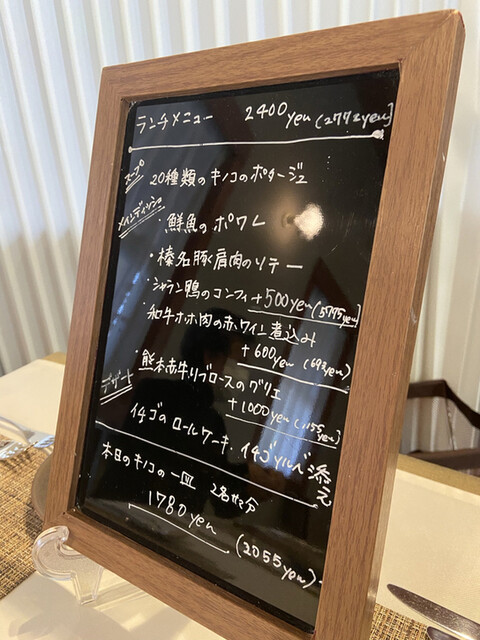 ランチメニュー 2400yen (2772yen)
スープ
20種類のキノコのポタージュ
メインディッシュ
・鮮魚のポワレ
・榛名豚肩肉のソテー
・シャラン鴨のコンフィ +500yen (577.5yen)
・和牛ホホ肉の赤ワイン煮込み
+600yen (693yen)
・熊本赤牛リブロースのグリエ
+1000yen (1155yen)
デザート
イチゴのロールケーキ・イチゴソルベ添え
本日のキノコの一皿 2名サマ分
1780yen (2055yen)